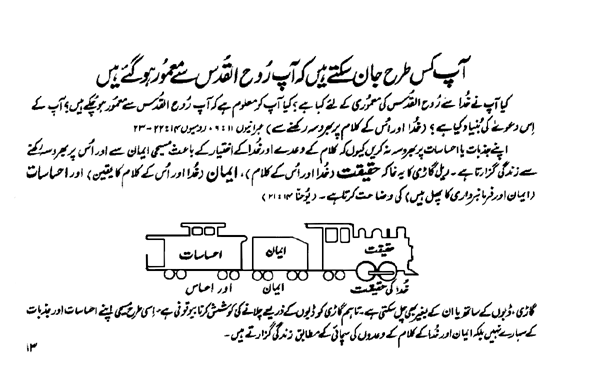 آپ کس طرح جان سکتے ہیں کہ آپ رُوح القُدس سے معمُور ہو گئے ہیں
کیا آپ نے خُدا سے رُوح القُدس کی معموُری کے لئے کہا ہے؟ کیا آپ کو معلوم ہے کہ آپ رُوح القُدس سے معمُور ہو چکے ہیں؟ آپ کے
اِس دعوے کی بُنیاد کیا ہے؟ (خُدا اور اُس کے کلام پر بھروسہ رکھنے سے) عبرانیوں ۱۱: ۶، رومیوں ۱۴: ۲۲ - ۲۳
اپنے جذبات یا احساسات پر بھروسہ نہ کریں کیوں کہ کلام کے وعدے اور خُدا کے اختیار کے باعث مسیحی ایمان سے اور اُس پر بھروسہ رکھنے
سے زندگی گزارتا ہے۔ ریل گاڑی کا یہ خاکہ حقیقت (خُدا اور اُس کے کلام)، ایمان (خُدا اور اُس کے کلام کا یقین) اور احساسات
(ایمان اور فرمانبرداری کا پھل ہیں) کی وضاحت کرتا ہے۔ (یُوحنا ۱۴: ۲۱)
احساسات ایمان حقیقت
اور احساس ایمان خُدا کی حقیقت
گاڑی، ڈبوں کے ساتھ یا ان کے بغیر بھی چل سکتی ہے۔ تاہم گاڑی کو ڈبوں کے ذریعے چلانے کی کوشش کرنا بیوقوفی ہے۔ اِسی طرح مسیحی اپنے احساسات اور جذبات
کے سہارے نہیں بلکہ ایمان اور خُدا کے کلام کے وعدوں کی سچائی کے مطابق زندگی گزارتے ہیں۔
۱۳